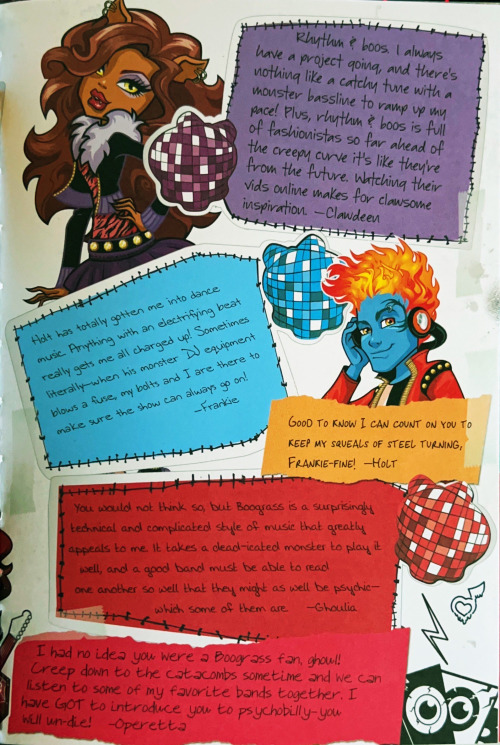 Rhythm & boos. I always
have a project going, and there's
nothing like a catchy tune with a
monster bassline to ramp up my
pace! Plus, rhythm & boos is full
of fashionistas so far ahead of
the creepy curve it's like they're
from the future. Watching their
vids online makes for clawsome
inspiration. —Clawdeen
Holt has totally gotten me into dance
music. Anything with an electrifying beat
really gets me all charged up! Sometimes
literally—when his monster DJ equipment
blows a fuse, my bolts and I are there to
make sure the show can always go on!
—Frankie
Good to know I can count on you to
keep my squeals of steel turning,
Frankie-fine! —Holt
You would not think so, but Boograss is a surprisingly
technical and complicated style of music that greatly
appeals to me. It takes a dead-icated monster to play it
well, and a good band must be able to read
one another so well that they might as well be psychic—
which some of them are. —Ghoulia
I had no idea you were a Boograss fan, ghoul!
Creep down to the catacombs sometime and we can
listen to some of my favorite bands together. I
have GOT to introduce you to psychobilly—you
will un-die! —Operetta